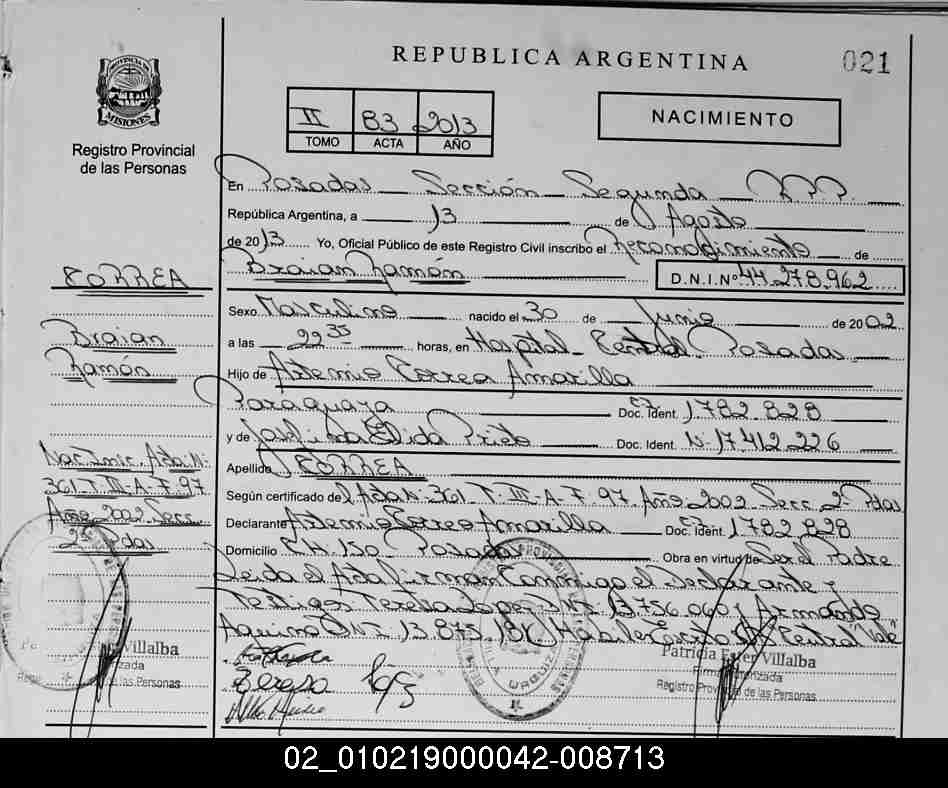 REPUBLICA ARGENTINA
021
PROVINCIA DE
MISIONES
Registro Provincial
de las Personas
II 83 2013
TOMO ACTA AÑO
NACIMIENTO
En Posadas Sección Segunda R.P.P.
República Argentina, a 13 de Agosto
de 2013 Yo, Oficial Público de este Registro Civil inscribo el Reconocimiento de
Braian Ramón D.N.I.Nº 44.278.962
CORREA
Braian
Ramón
Sexo Masculino nacido el 30 de Junio de 2002
a las 22 35 horas, en Hospital Central Posadas
Hijo de Artemio Correa Amarilla
Paraguaya Doc. Ident. CI 1782828
y de Elida Prieto Doc. Ident. Nº 17.412.226
Apellido CORREA
Según certificado del Acta Nº 361 T. III-A-F. 97 Año 2002 Secc 2º Pdas
Declarante Artemio Correa Amarilla Doc. Ident. CI 1782828
Domicilio CH. 150 Posadas Obra en virtud de Ser el Padre
Leida el Acta firman Conmigo el declarante y
Testigos Teresa Lopez DNI 13.756.060 y Armando
Aquino DNI 13.875. Central "Vale"
Nac. Inic. Acta Nº
361 T. III-A-F. 97
Año 2002 Secc.
2º Pdas
Teresa
Patricia Ester Villalba
Firma Autorizada
Registro Provincial de las Personas
Villalba
las Personas
02_010219000042-008713